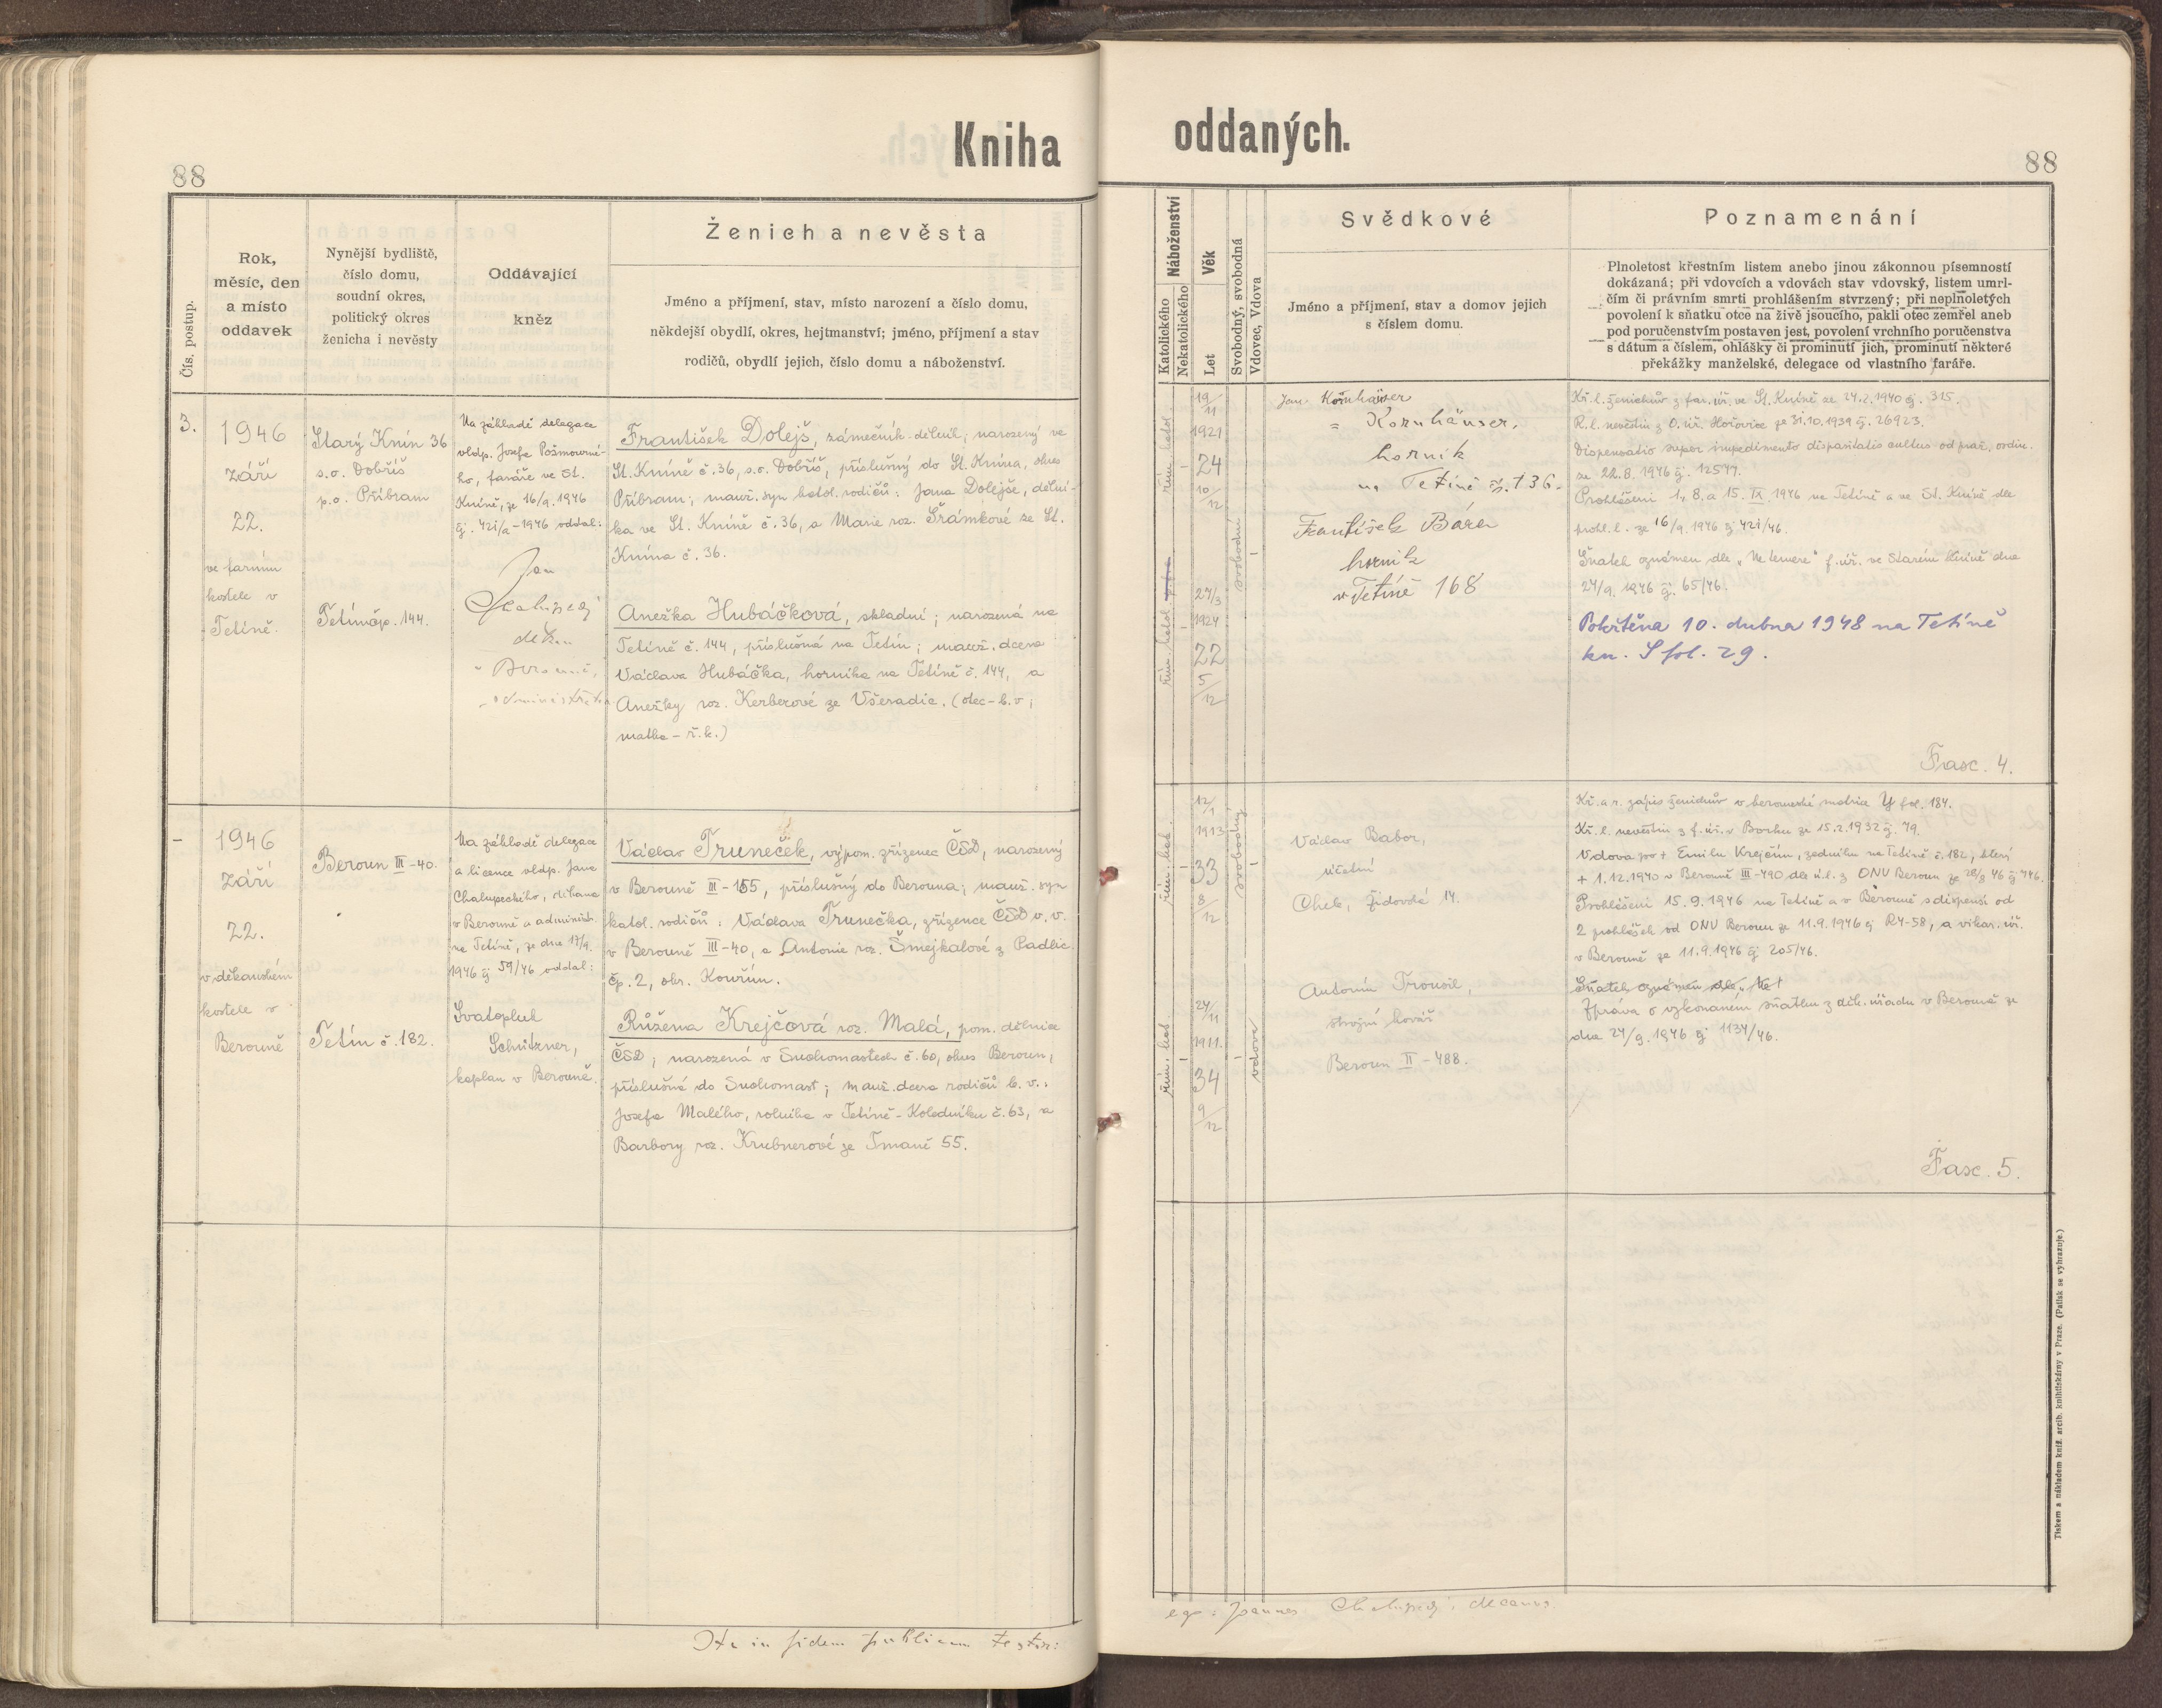 Kniha
oddaných.
88
88
Čís. postup.
Rok,
měsíc, den
a místo
oddavek
Nynější bydliště,
číslo domu,
soudní okres,
politický okres
ženicha i nevěsty
Oddávající
kněz
Ženich a nevěsta
Jméno a příjmení, stav, místo narození a číslo domu,
někdejší obydlí, okres, hejtmanství; jméno, příjmení a stav
rodičů, obydlí jejich, číslo domu a náboženství.
Náboženství
Katolického
Nekatolického
Věk
Let
Svobodný, svobodná
Vdovec, Vdova
Svědkové
Jméno a příjmení, stav a domov jejich
s číslem domu.
Poznamenání
Plnoletost křestním listem anebo jinou zákonnou písemností
dokázaná; při vdovcích a vdovách stav vdovský, listem umrl-
čím či právním smrti prohlášením stvrzený; při neplnoletých
povolení k sňatku otce na živě jsoucího, pakli otec zemřel aneb
pod poručenstvím postaven jest, povolení vrchního poručenstva
s dátum a číslem, ohlášky či prominutí jich, prominutí některé
překážky manželské, delegace od vlastního faráře.
3.
1946
září
22.
ve farním
kostele v
Tetíně.
Starý Knín 36
s.o. Dobříš
p.o. Příbram
Tetín čp. 144.
Na základě delegace
vldp. Josefa
ho, faráře ve St.
Kníně, ze 16/9. 1946
čj. 421/a-1946 oddal:
Jan
Chalupecký
děkan
v Berouně,
administrátor
František Dolejš, zámečník. dělník; narozený ve
St. Kníně č. 36, s.o. Dobříš, příslušný do St. Knína, okres
Příbram; manž. syn katol. rodičů: Jana Dolejše, dělní-
ka ve St. Kníně č. 36, a Marie roz. Šrámkové ze St.
Knína č. 36.
Anežka Hubáčková, skladní; narozená na
Tetíně č. 144, příslušná na Tetín; manž. dcera
Václava Hubáčka, horníka na Tetíně č. 144, a
Anežky roz. Kerberové ze Všeradic. (otec - b.v;
matka - ř.k.)
řím. katol
19/11
1921
24
10/12
svobodní
řím. katol
27/3
1924
22
5/12
Jan Kornhäuser
= Kornhäuser,
horník
na Tetíně čp. 136.
František Bára
horník
v Tetíně 168
Kř. l. ženichův z far. úř. ve St. Kníně ze 24.2.1940 čj. 315.
R. l. nevěstin z O. úř. Hořovice ze 31.10.1939 čj. 26923.
Dispensatio super impedimento disparitatis cultus od praž. ordin.
ze 22.8.1946 čj. 12547.
Prohlášeni 1, 8. a 15. IX 1946 na Tetíně a ve St. Kníně dle
prohl. l. ze 16/9. 1946 čj 421/46.
Sňatek oznámen dle "Ne temere" f. úř. ve Starém Kníně dne
24/9. 1946 čj. 65/46.
Pokřtěna 10. dubna 1948 na Tetíně
kn. S fol. 29.
Fasc. 4.
-
1946
září
22.
v děkanském
kostele v
Berouně
Beroun III-40.
Tetín č. 182.
Na základě delegace
a licence vldp. Jana
Chalupeckého, děkana
v Berouně a administr.
na Tetíně, ze dne 17/9.
1946 čj 59/46 oddal:
Svatopluk
Schützner,
kaplan v Berouně.
Václav Truneček, výpom. zřízenec ČSD, narozený
v Berouně III-155, příslušný do Berouna; manž. syn
katol. rodičů: Václava Trunečka, zřízence ČSD v.v.
v Berouně III-40, a Antonie roz. Šmejkalové z Radlic
čp. 2, okr. Kouřim.
Růžena Krejčová roz. Malá, pom. dělnice
ČSD; narozená v Suchomastech č. 60, okres Beroun,
příslušná do Suchomast; manž. dcera rodičů b.v.:
Josefa Malého, rolníka v Tetíně-Koledníku č. 63, a
Barbory roz. Krubnerové ze Tmaně 55.
řím. kat.
12/1
1913
33
8/12
svobodný
řím. kat.
24/11
1911.
34
9/12
vdova
Václav Babor,
účetní
Cheb, Židovská 14.
Antonín Trousil,
strojní kovář
Beroun II-488.
Kř. a r. zápis ženichův v berounské matrice fol. 184.
Kř. l. nevěstin z f. úř. v Borku ze 15.2.1932 čj. 79.
Vdova po + Emilu Krejčím, zedníku na Tetíně č. 182, který
+ 1.12.1940 v Berouně III-490 dle ú.l. z ONV Beroun ze 28/8 46 čj 746.
Prohlášeni 15.9.1946 na Tetíně a v Berouně s dispensí od
2 prohlášek od ONV Beroun ze 11.9.1946 čj R4-58, a vikar. úř.
v Berouně ze 11.9.1946 čj 205/46.
Sňatek oznámen dle „Ne t
Zpráva o vykonaném sňatku z děk. úřadu v Berouně ze
dne 24/9. 1946 čj 1134/46.
Fasc. 5.
Ita in fidem publicam testor:
ego: Joannes Chalupecký, decanus.
Tiskem a nákladem kníž. arcib. knihtiskárny v Praze. (Patisk se vyhrazuje.)